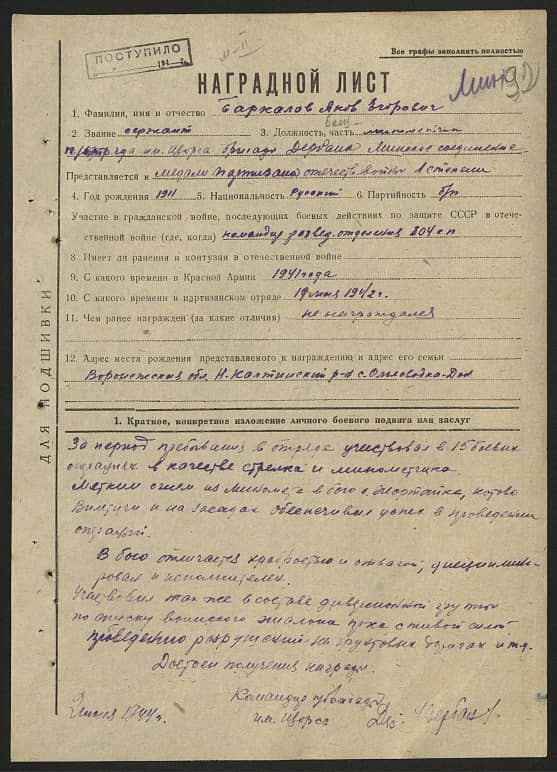 ПОСТУПИЛО
194
Все графы заполнять полностью
НАГРАДНОЙ ЛИСТ
1. Фамилия, имя и отчество Баркалов Яков Егорович
2. Звание сержант 3. Должность, часть минометчик
отряда им. Щорса бригады Дербана Минское соединение
Представляется к медали партизана отечеств. войны 1 степени
4. Год рождения 1911 5. Национальность Русский 6. Партийность б/п
Участие в гражданской войне, последующих боевых действиях по защите СССР в отече-
ственной войне (где, когда) командир развед. отделения 204 с п
8. Имеет ли ранения и контузии в отечественной войне
9. С какого времени в Красной Армии 1941 года
10. С какого времени в партизанском отряде 19 мая 1942 г.
11. Чем ранее награжден (за какие отличия) не награждался
12. Адрес места рождения представляемого к награждению и адрес его семьи
Воронежская обл. Н. р-н с.
ДЛЯ ПОДШИВКИ
1. Краткое, конкретное изложение личного боевого подвига или заслуг
За период пребывания в отряде участвовал в 15 боевых
операциях в качестве стрелка и минометчика.
Метким огнем из миномета в бою
и на засадах обеспечивал успех в проведении
операций.
В бою отличается храбростью и отвагой, дисциплини-
рован и исполнителен.
Участвовал так же в составе диверсионной группы
по спуску воинского эшелона п-ка с живой силой
проведению разрушений на грунтовых дорогах и т.д.
Достоин получения награды.
Командир бригады
им. Щорса
1944 г.